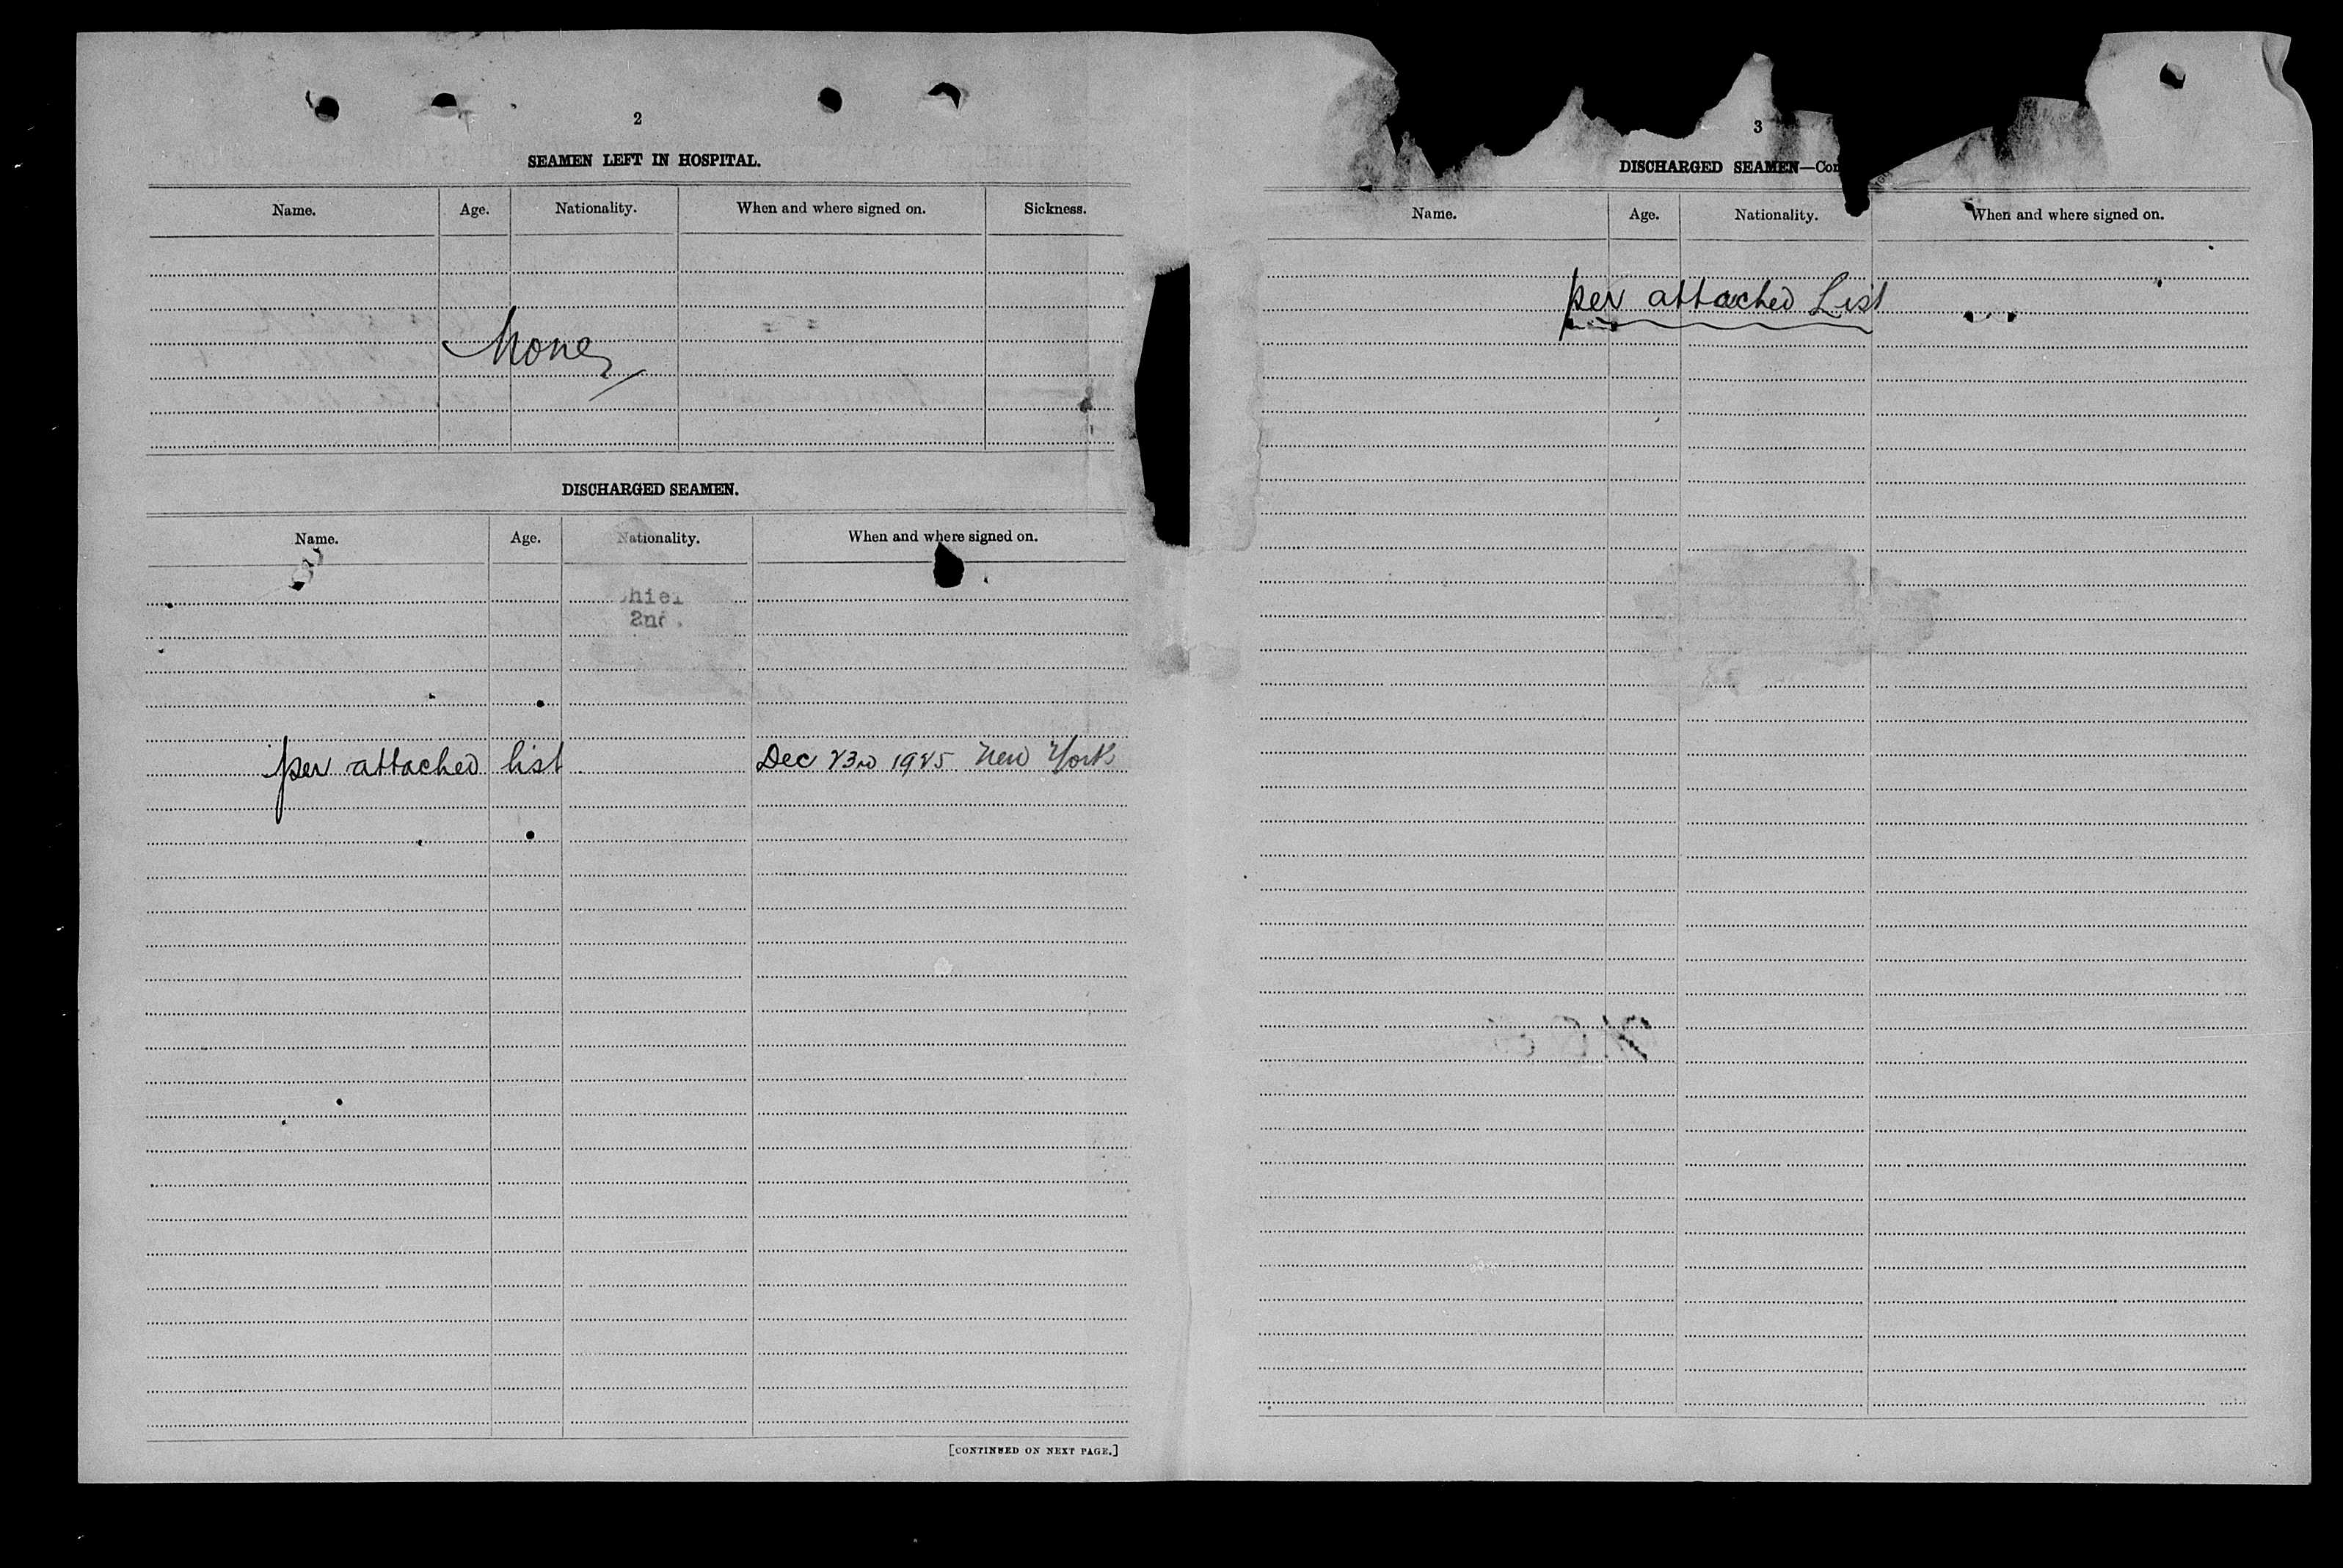 2
SEAMEN LEFT IN HOSPITAL.
Name. Age. Nationality. When and where signed on. Sickness.
None
DISCHARGED SEAMEN.
Name. Age. Nationality. When and where signed on.
2nd
per attached list Dec 23rd 1925 New York
[CONTINUED ON NEXT PAGE.]
3
DISCHARGED SEAMEN—Con
Name. Age. Nationality. When and where signed on.
per attached List